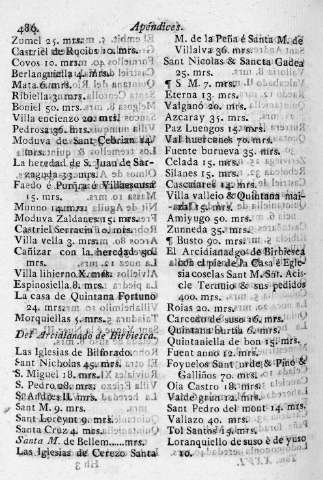 486. Apéndices.
Zumel 25. mrs.
Castriel de Rucios 10. mrs.
Covos 10. mrs.
Berlanguiella 4. mrs.
Mata 6. mrs.
Ribiella 3. mrs.
Boniel 50. mrs.
Villa encienzo 20. mrs.
Pedrosa 36. mrs.
Moduva de Sant Cebrian 24.
mrs.
La heredat de S. Juan de Sar-
zaguda 33. mrs.
Faedo é Villaescusa
15. mrs.
Munno 14. mrs.
Moduva Zaldanes 15. mrs.
Castriel Serracin 10. mrs.
Villa vella 3. mrs.
Cañizar con la heredad 90.
mrs.
Villa lihierno X. mrs.
Espinosiella 8. mrs.
La casa de Quintana Fortuno
24. mrs.
Morquiellas 5. mrs.
Del Arcidianado de Birbiesca.
Las Iglesias de Bilforado.
Sant Nicholas 45. mrs.
S. Miguel 18. mrs.
S. Pedro 28. mrs.
mrs.
Sant M. 9. mrs.
Sant Loreynt 9. mrs.
Santa Cruz 4. mrs.
Santa M. de Bellem......mrs.
Las Iglesias de Cerezo Santa
Hh 3
M. de la Peña é Santa M. de
Villalva 36. mrs.
Sant Nicolas & Sancta Gadea
25. mrs.
¶ S M. 7. mrs.
Eterna 13. mrs.
Valgano 20. mrs.
Azcaray 35. mrs.
Paz Luengos 15. mrs.
Val huercanes 70. mrs.
Fuente burueva 35. mrs.
Celada 15. mrs.
Silanes 15. mrs.
Cascaiares 14. mrs.
Villa valeio & Quintana mai-
15. mrs.
Amiyugo 50. mrs.
Zunneda 35. mrs.
¶ Busto 90. mrs.
El Arcidianadgo de Birbiesca
con el pie de la Casa é Egle
sia coselas Sant M. Snt. Acis-
cle Terunio & sus pedidos
400. mrs.
Roias 20. mrs.
Carcedo de suso 16. mrs.
Quintana burtia 6. mrs.
Quintaniella de bon 15. mrs.
Fuent anno 12. mrs.
Foyuelos Sant urde & Pino &
Galliños 70. mrs.
Oia Castro 18. mrs.
Valde gran 12. mrs.
Sant Pedro del mont 14. mrs.
Vallazo 40. mrs.
Tol Santos 15. mrs.
Loranquiello de suso é de yuso
10.